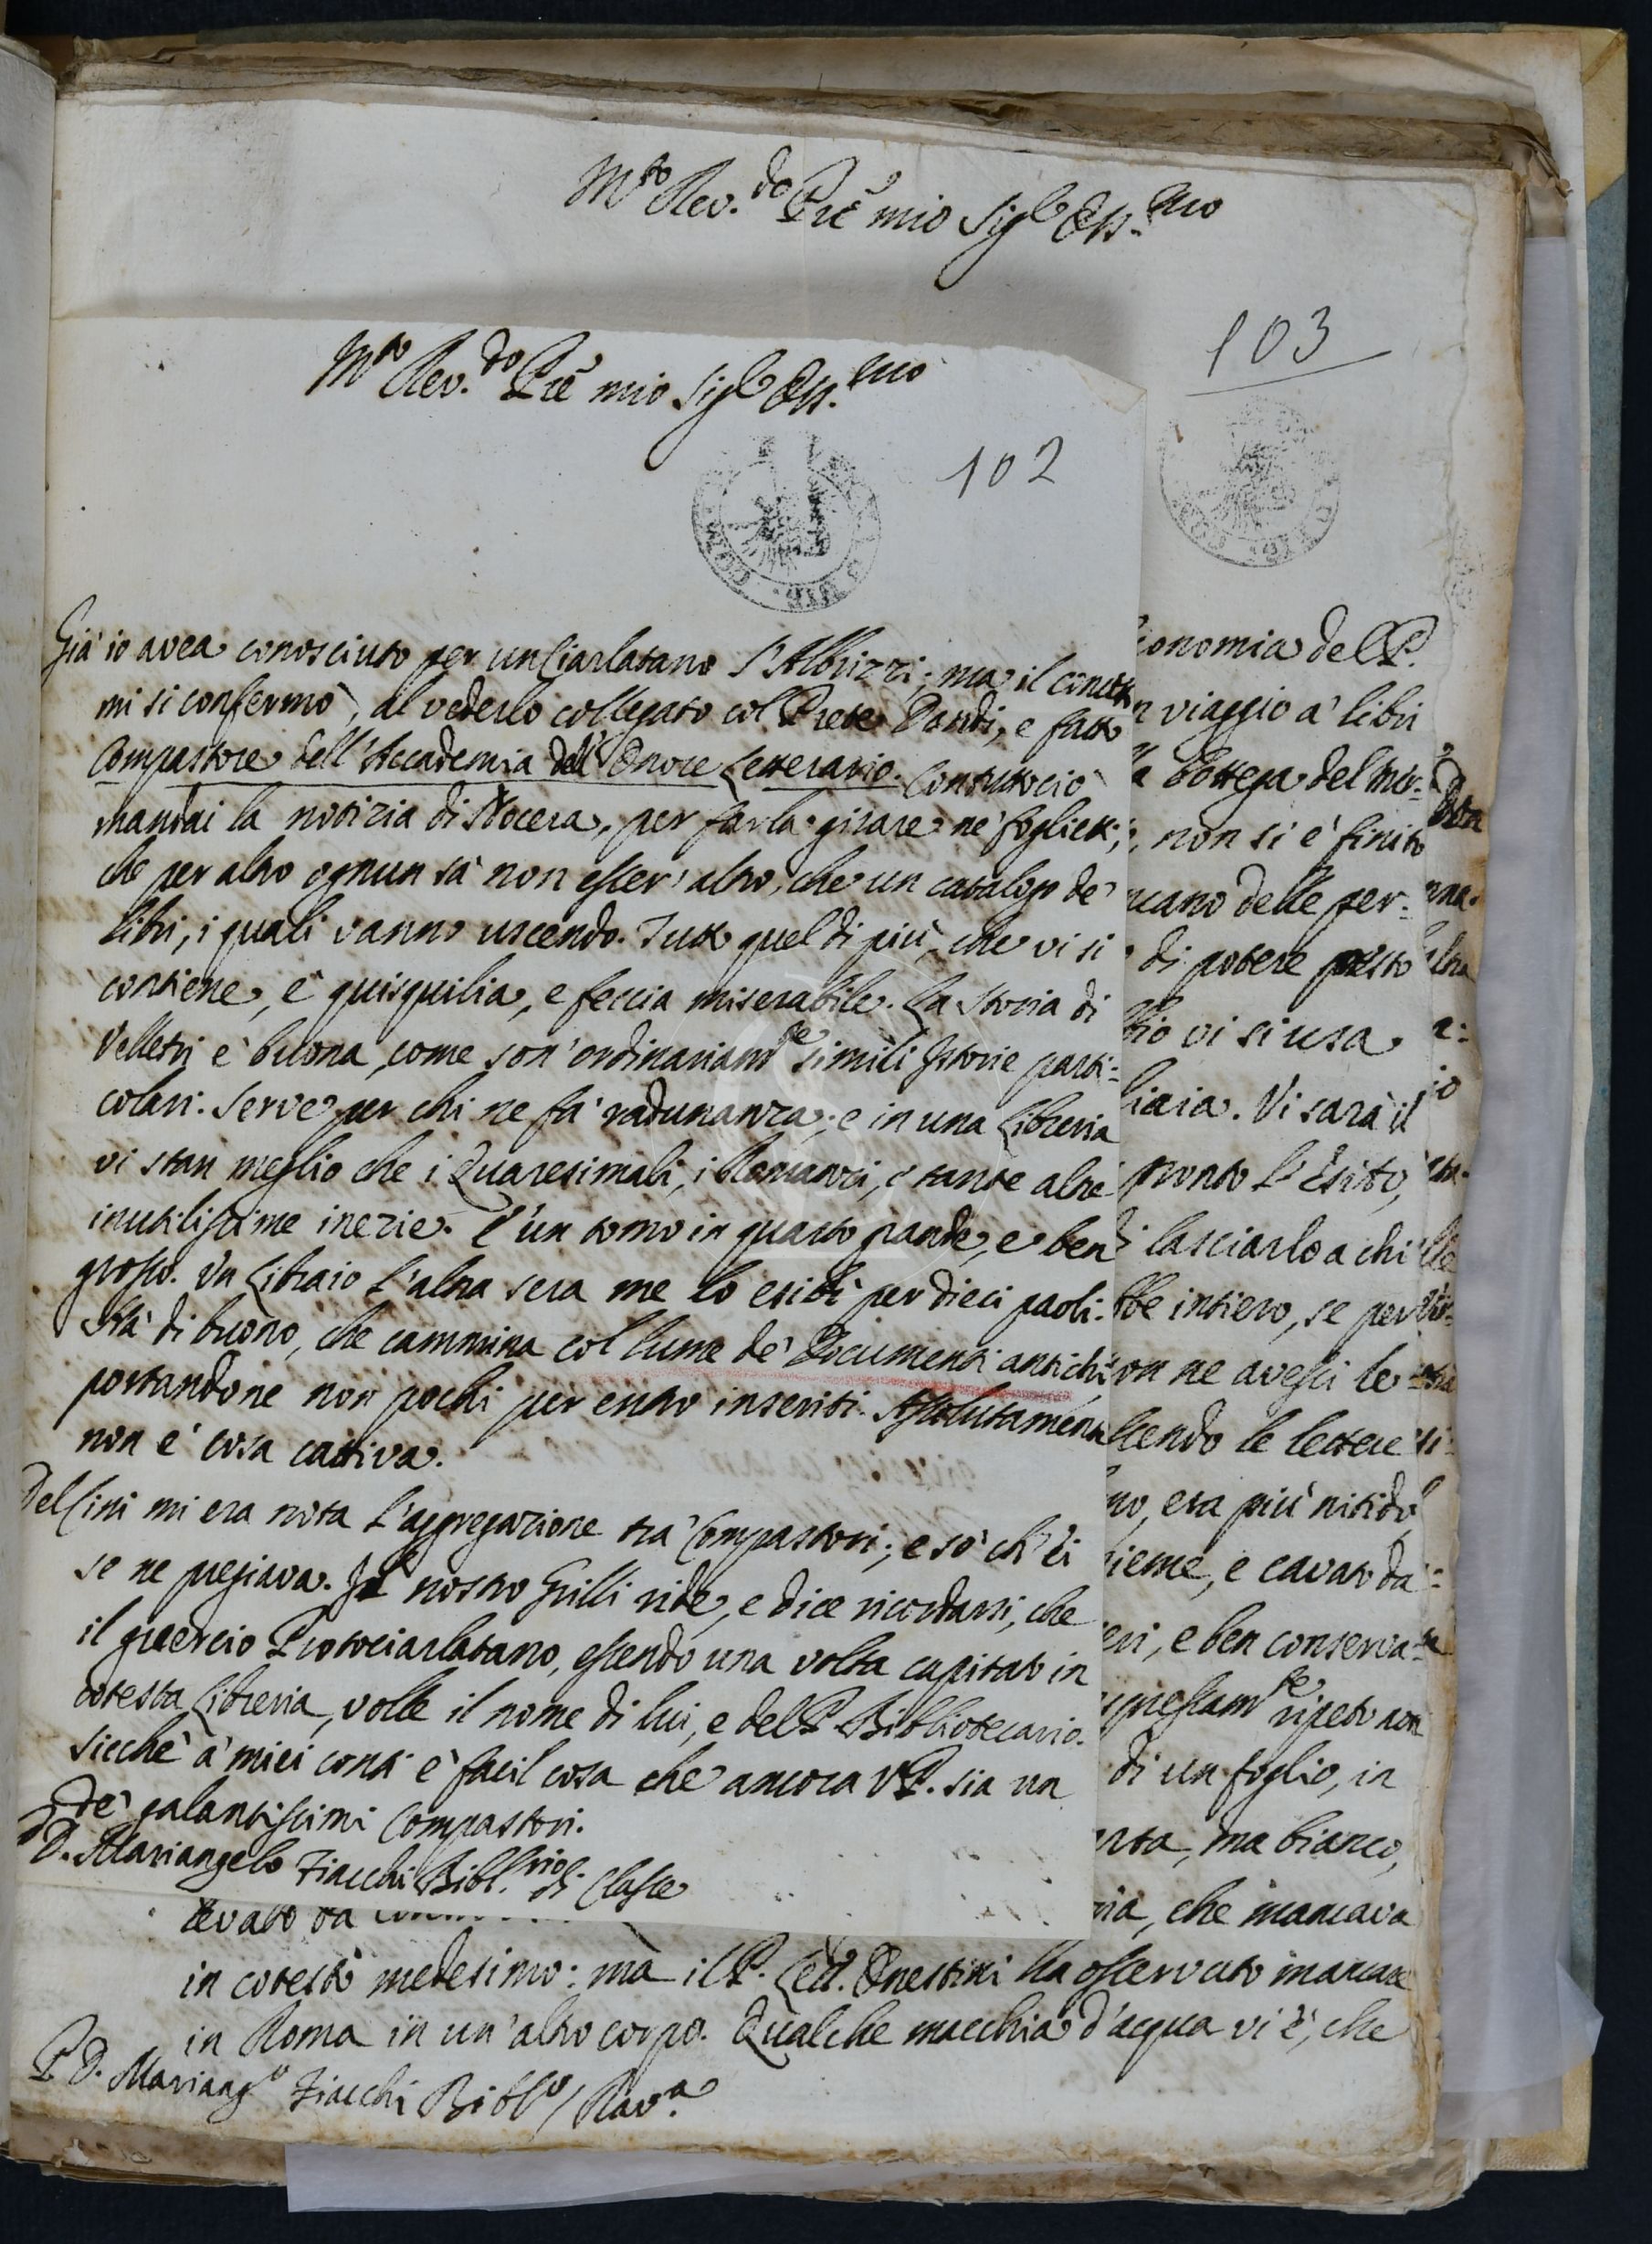 M.to Rev.do Pre mio Sig.e Oss.mo
103
M.to Rev.do Pre mio Sig.e Oss.mo
102
Già io avea conosciuto per un Ciarlatano l'Albrizzi; ma il concetto
mi si confermò, al vederlo collegato col Prete Dandi, e fatto
Compastore dell'Accademia dell'Onore Letterario. Contuttociò
mandai la notizia di Nocera, per farla girare ne' foglietti;
che per altro ognun sà non esser' altro, che un catalogo de'
libri, i quali vanno uscendo. Tutto quel di più, che vi si
contiene, è quisquilia, e feccia miserabile. La Storia di
Velletri è buona, come son' ordinariam.te simili Istorie parti:
colari. Serve per chi ne fà radunanza; e in una Libreria
vi stan meglio che i Quaresimali, i Romanzi, e tante altre
inutilissime inezie. È un tomo in quarto grande, e ben
grosso. Un Libraio l'altra sera me lo esibì per dieci paoli.
Hà di buono, che cammina col lume de' Documenti antichi,
portandone non pochi per entro inseriti. Assolutamente
non è cosa cattiva.
Del Cini mi era nota l'aggregazione trà Compastori; e sò ch'ei
se ne pregiava. Il nostro Grilli ride, e dice ricordarsi, che
il guercio Protociarlatano, essendo una volta capitato in
cotesta Libreria, volle il nome di lui, e del P. Bibliotecario.
Sicchè à miei conti è facil cosa che ancora V.P. sia un
de' galantissimi Compastori.
P. D. Mariangelo Fiacchi Bibl.rio di Classe
conomia del P.
n viaggio a' libri
a bottega del
non si è finito
ncano delle per:
di potere presto
vi si usa
liaia. Vi sarà il
pronto l'Esito,
lasciarlo a chi
intiero, se per
on ne avessi le
scendo le lettere
no, era più nitido
ieme, e cavato da
eri, e ben conserva:
espressam.te ripeto non
di un foglio, in
arta, ma bianco,
ria, che mancava
levato da
in cotesto medesimo: mà il P. Lett. Onestini ha osservato mancare
in Roma in un'altro corpo. Qualche macchia d'acqua vi è, che
P. D. Mariang.o Fiacchi Bibl.o / Rav.a